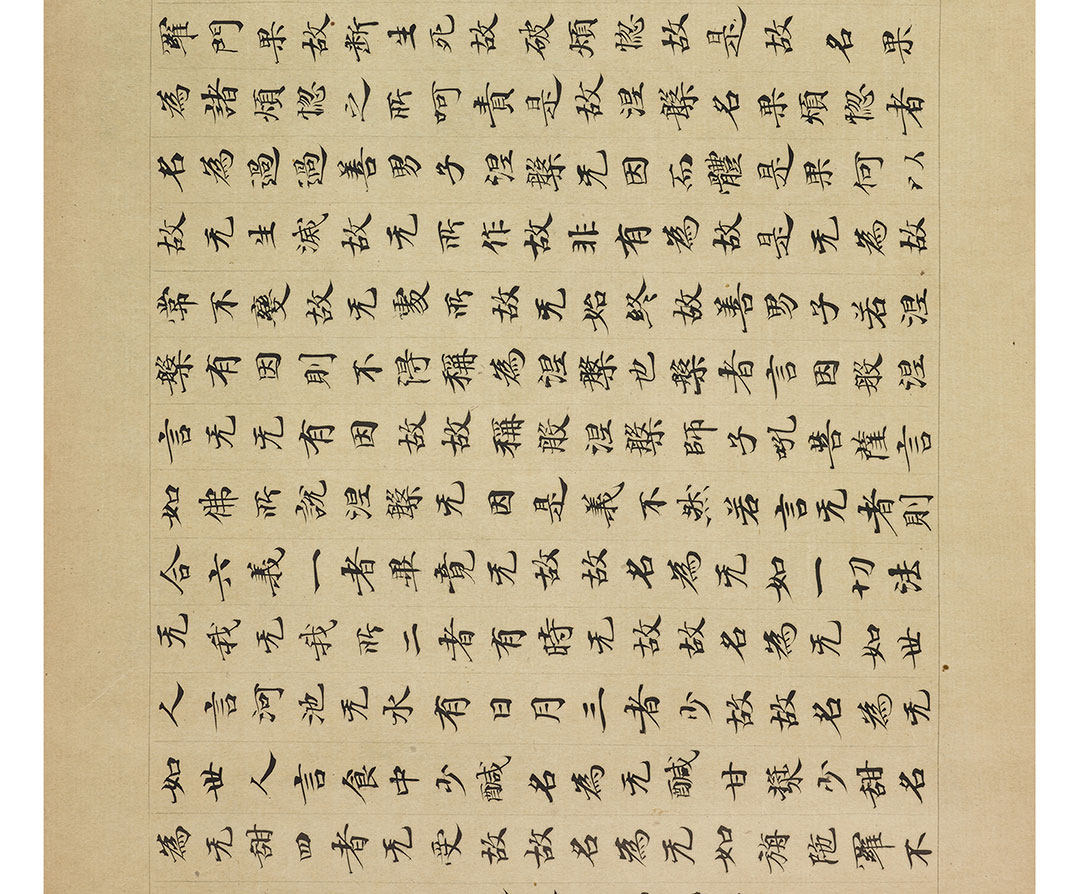 羅門果故斷生死故破煩惱故是故名果
為諸煩惱之所呵責是故涅槃名果煩惱者
名為過過善男子涅槃无因而體是果何以
故无生滅故无所作故非有為故是无為故
常不變故无處所故无始終故善男子若涅
槃有因則不得稱為涅槃也槃者言因般涅
言无无有因故故稱般涅槃師子吼菩薩言
如佛所說涅槃无因是義不然若言无者則
合六義一者畢竟无故故名為无如一切法
无我无我所二者有時无故故名為无如世
人言河池无水有日月三者少故故名為无
如世人言食中少醎名為无醎甘漿少甜名
為无甜四者无受故故名為无如旃陁羅不